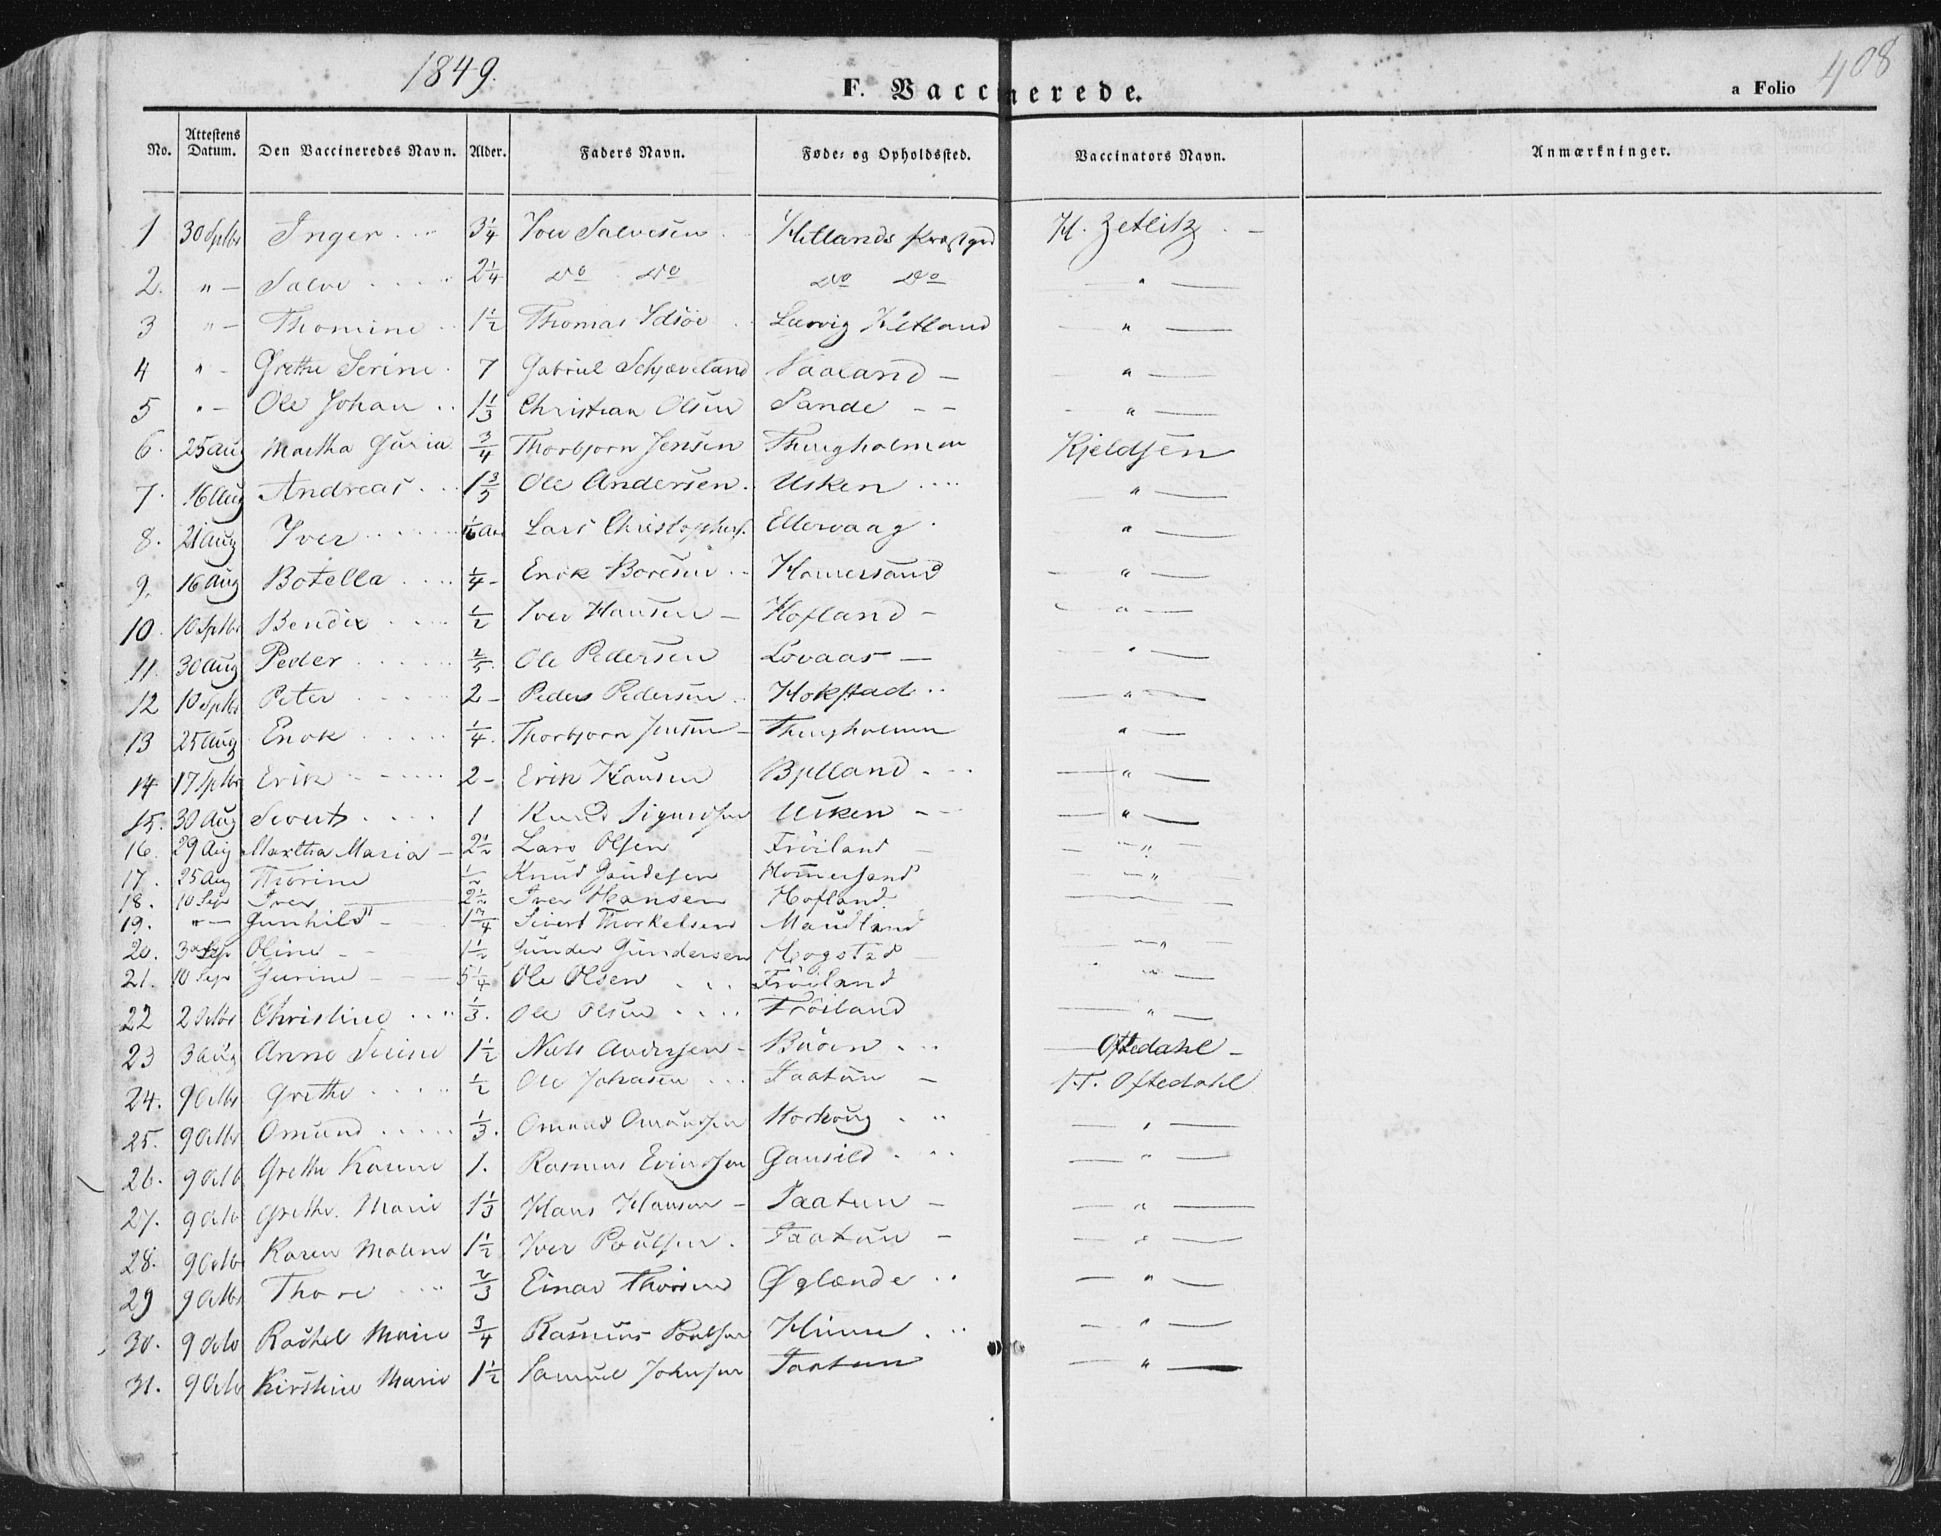 1849.
F. Vaccinerede.
a Folio 408
No. Attestens Datum. Den Vaccineredes Navn. Alder. Faders Navn. Føde- og Opholdssted. Vaccinators Navn. Anmærkninger.
1 30 Sptbr Inger 3 1/4 Iver Salvesen Hetlands H. Zetlitz
2. " — Salve 2 1/4 do do do do "
3 " — Thomine 1 1/2 Thomas Idsöe Lervig Hetland "
4 " - Grethe Serine 7 Gabriel Schjæveland Vaaland "
5 " - Ole Johan 1 1/3 Christian Olsen Sande "
6. 25 Aug Martha Guria 3/4 Thorbjorn Jensen Thingholmen Kjeldsen
7. 16 Aug Andreas 1 3/5 Ole Andersen Usken "
8. 21 Aug Iver Lars Christophers. Ellervaag "
9. 16 Aug Botella 1/4 Enok Boresen Homersand "
10. 10 Sptbr Bendix 1/2 Iver Hansen Hofland "
11. 30 Aug Peder 2/5 Ole Pedersen Lovaas "
12 10 Sptbr Peter 2 Peder Pedersen Hokstad "
13 25 Aug Enok 1/4 Thorbjorn Jensen Thingholmen "
14 17 Sptbr Erik 2 Erik Hansen Bjelland "
15. 30 Aug Sivert 1 Knud Sigurdsen Usken "
16. 29 Aug Martha Maria 2 1/2 Lars Olsen Fröiland "
17. 25 Aug Thorine 1/2 Knud Gaudesen Homersand "
18. 10 Sep Iver 2 1/2 Iver Hansen Hofland
19. " — Gunhild 1 3/4 Sivert Thorkelsen Maudland
20. 30 Sep Oline 1 1/2 Gunder Gundersen Hogstad "
21. 10 Sep Gurine 5 1/4 Ole Olsen Fröiland "
22 2 Octbr Christine 1/3. Ole Olsen Fröiland "
23 3 Aug Anne Serine 1 1/2 Niels Andersen Buöen Oftedahl
24. 9 Octbr Grethe 1/2 Ole Johnsen Taatun T. Oftedahl
25. 9 Octbr Omund 1/3. Omund Omundsen "
26. 9 Octb Grethe Karine 1. Rasmus Gausild "
27. 9 Octb Grethe Marie 1 1/3 Hans Hansen Taatun "
28. 9 Octb Karen Malene 1 1/2 Iver Poulsen Taatun "
29 9 Octbr Thore 2/3 Einar Thorsen Øglænde "
30. 9 Octb Rachel Marie 3/4 Rasmus Poulsen Hinne "
31. 9 Octb Kirstine Marie 1 1/2 Samuel Johnsen Taatun "